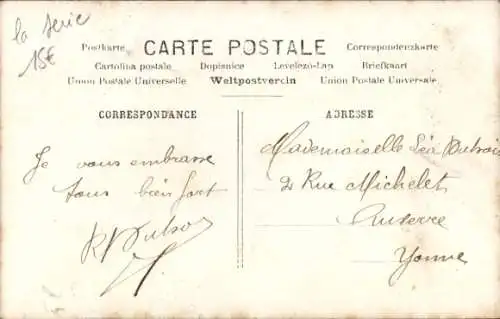 la serie
15€
Postkarte CARTE POSTALE Correspondenzkarte
Cartolina postale Dopisnice Levelezö-Lap Briefkaart
Union Postale Universelle Weltpostverein Union Postale Universale
CORRESPONDANCE
Je vous embrasse
tous bien fort
R Dubois
ADRESSE
Mademoiselle Léa Dubois
2 Rue Michelet
Auxerre
Yonne